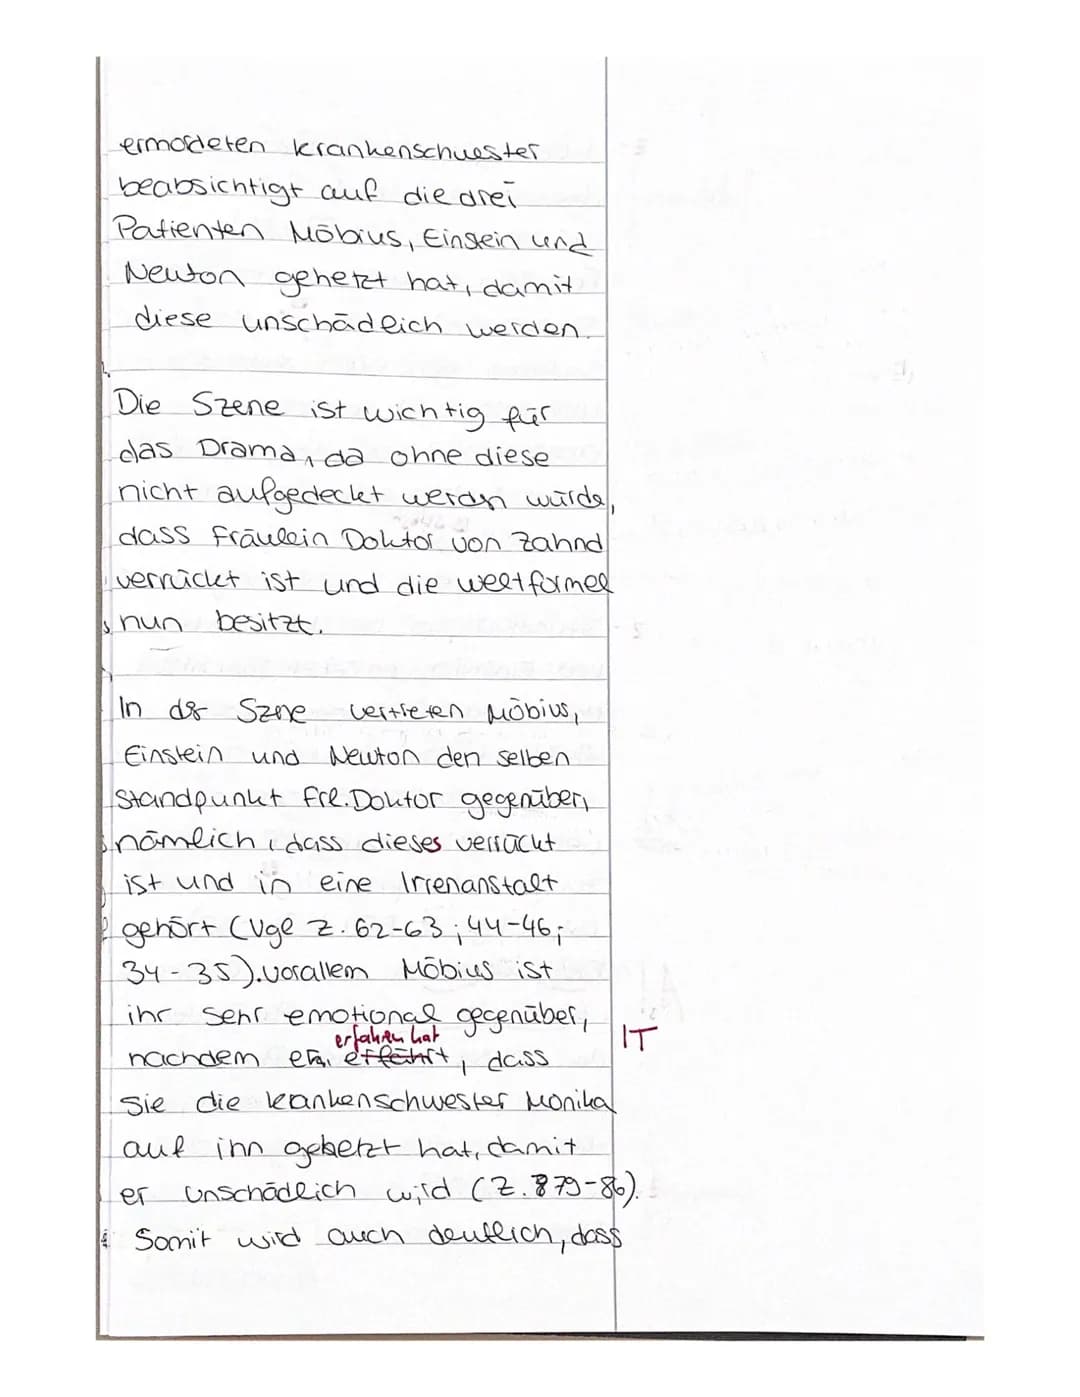 ermordeten Krankenschwester
beabsichtigt auf die drei
Patienten Möbius, Einstein und
Newton gehetzt hat, damit
diese unschädlich werden.
Die Szene ist wichtig für
das Drama, da ohne diese
nicht aufgedeckt werdn würde,
dass Fräulein Doktor von Zahnd
verrückt ist und die Weltformel
nun besitzt.
In der Szene vertreten Möbius,
Einstein und Newton den selben
Standpunkt Frl. Doktor gegenüber,
nämlich, dass dieses verrückt
ist und in eine Irrenanstalt
gehört (Vgl Z. 62-63; 44-46;
34-35). vorallem Möbius ist
ihr sehr emotional gegenüber,
erfahren hat
nachdem er, erfährt, dass IT
sie die Krankenschwester Monika
auf ihn gehetzt hat, damit
er unschädlich wird (Z. 79-86).
Somit wird auch deutlich, dass